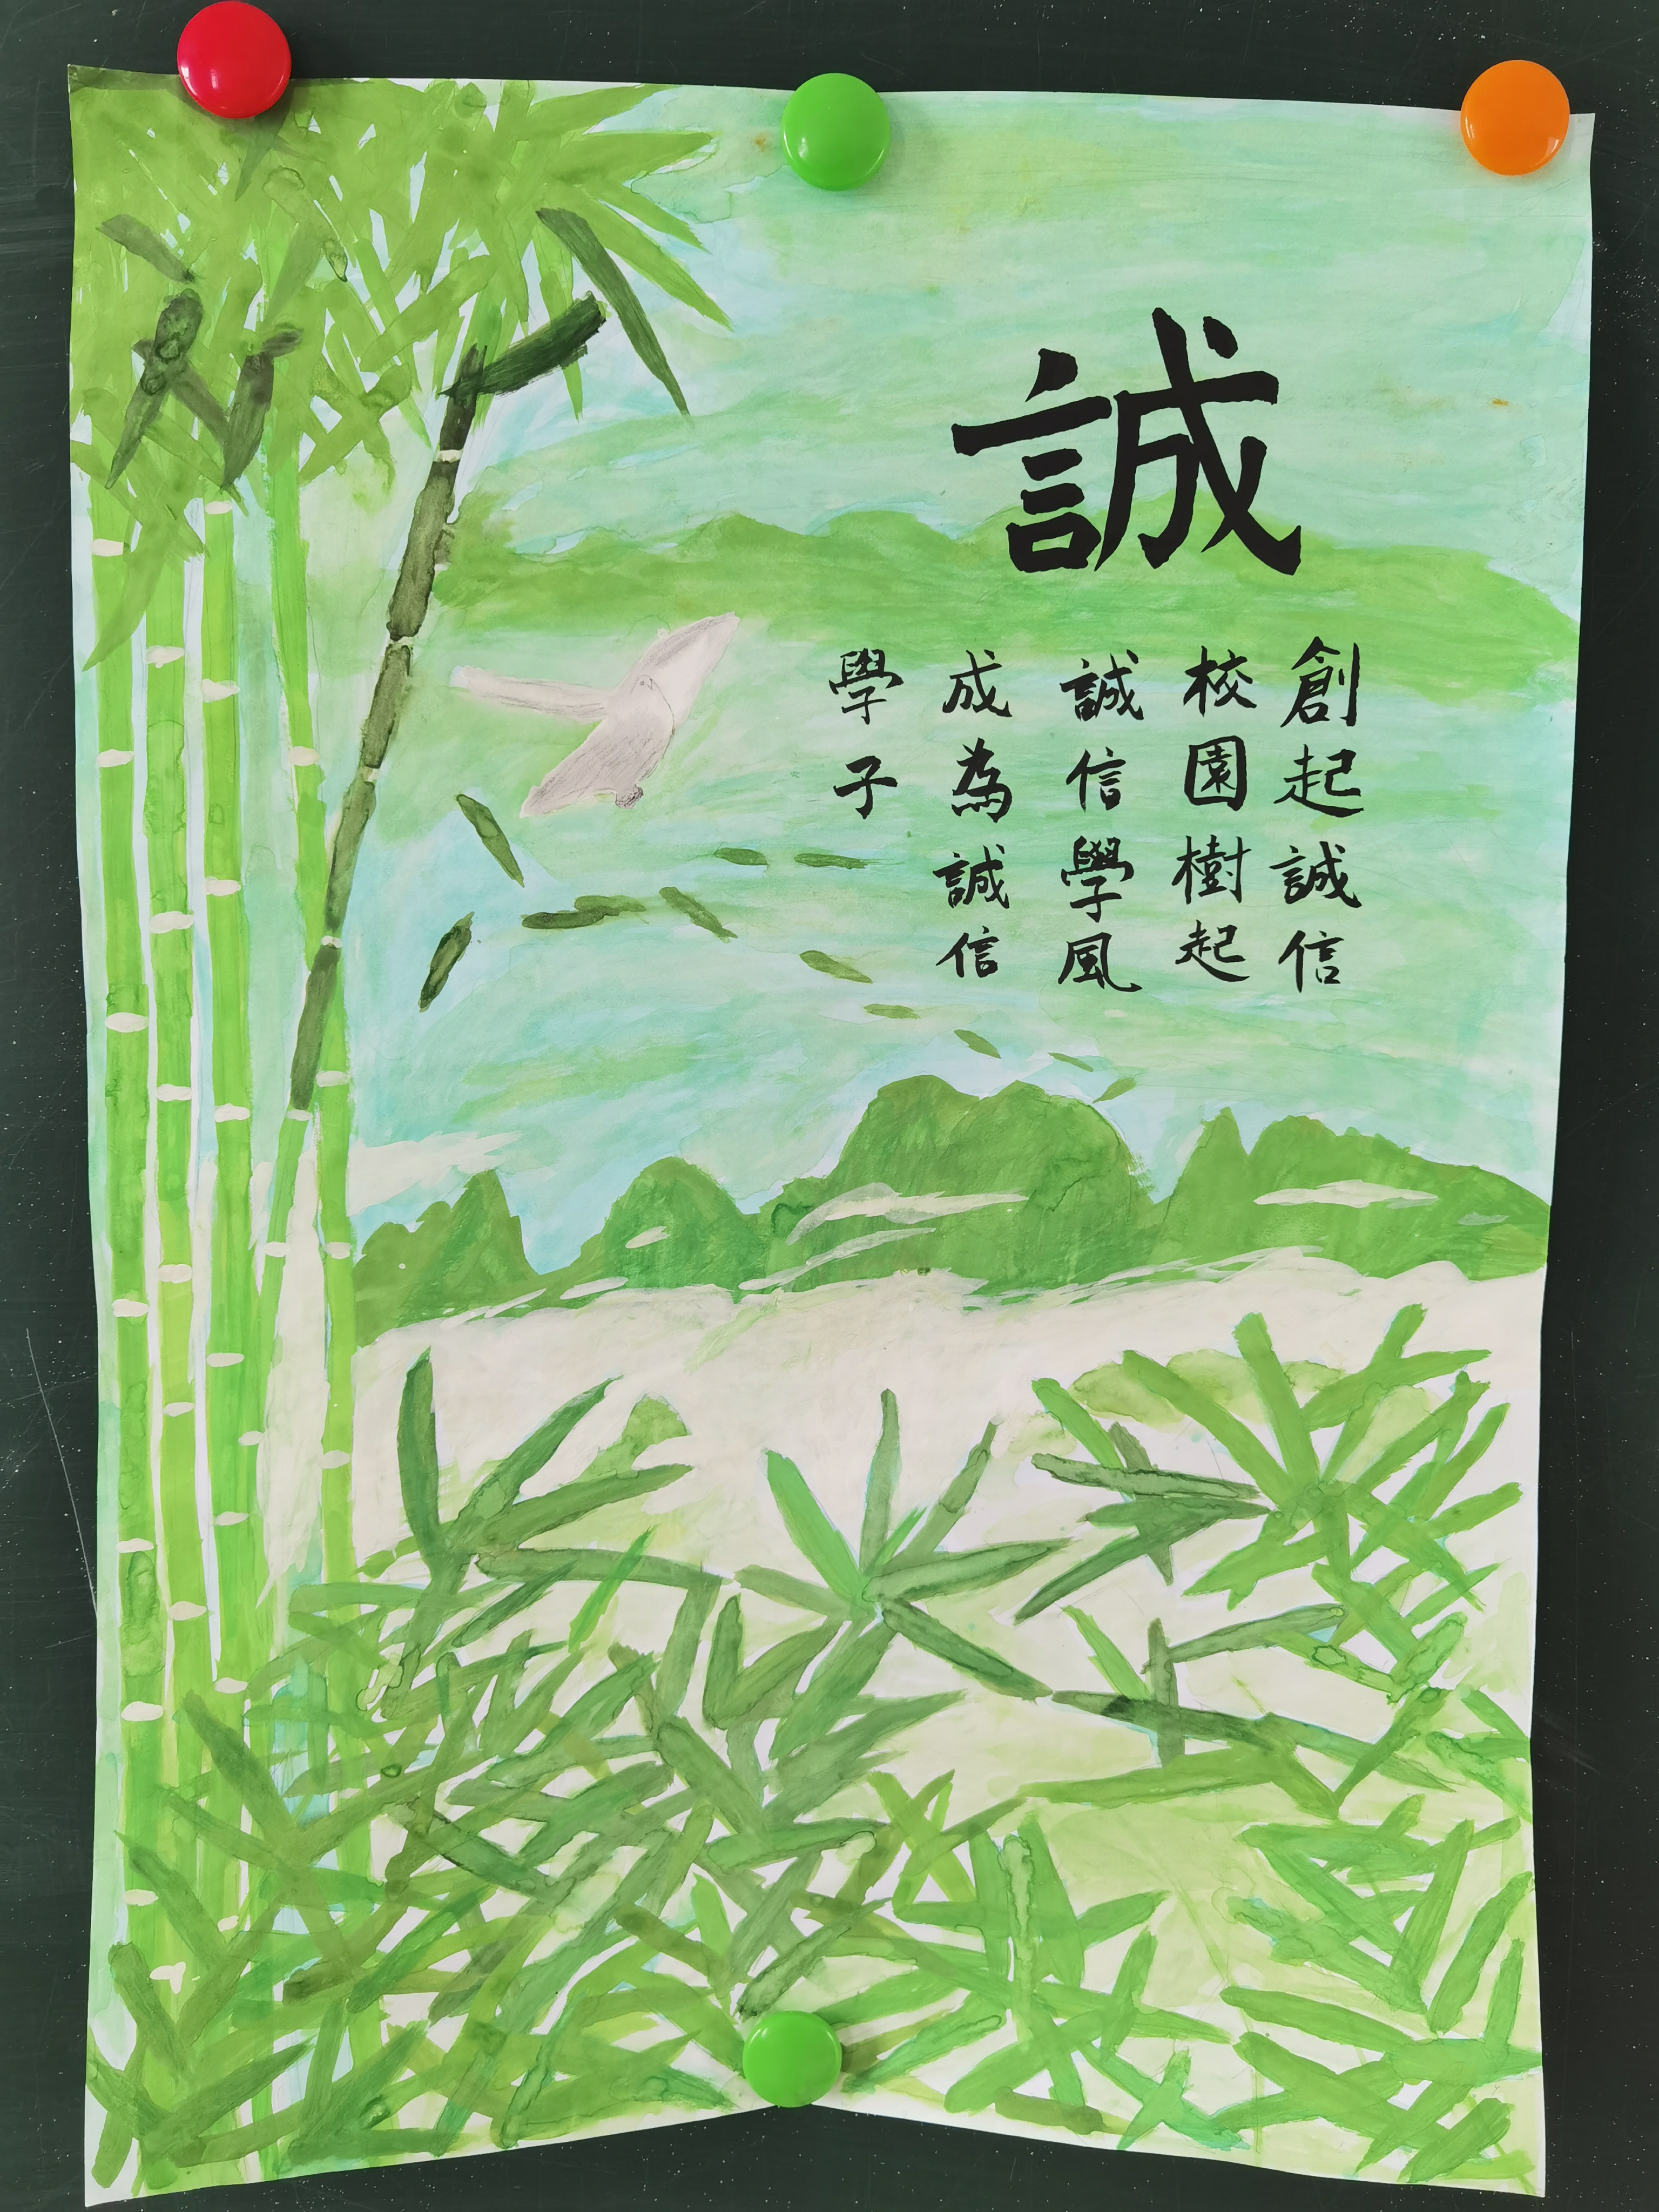 誠
創起誠信
校園樹起
誠信學風
成為誠信
學子